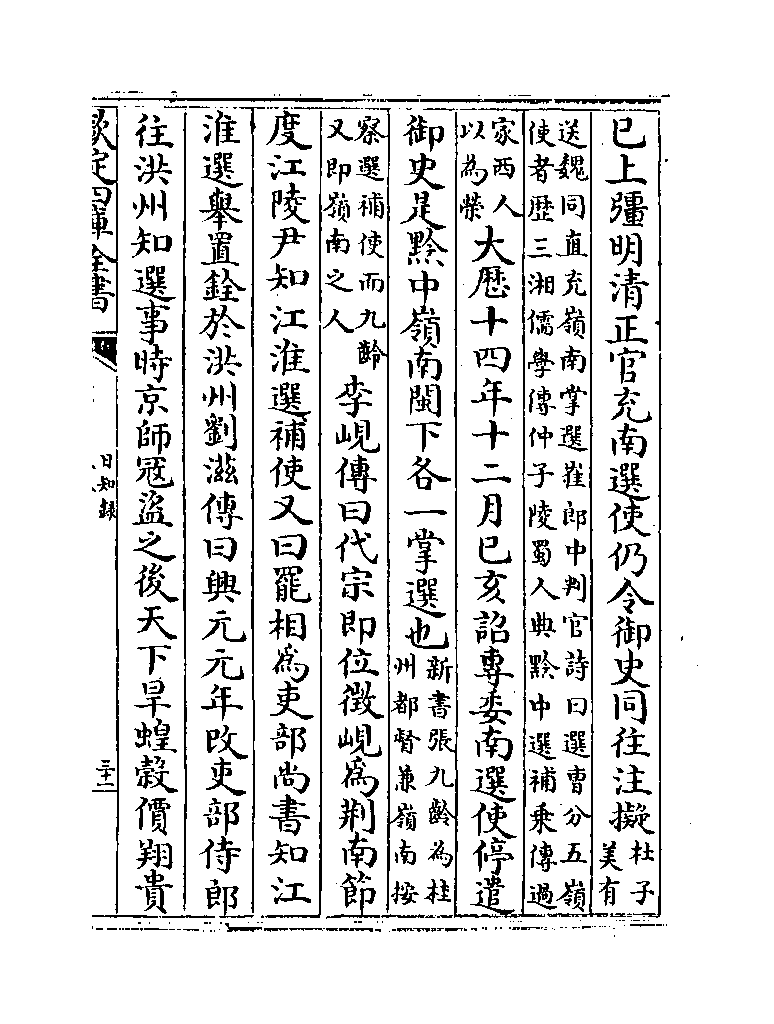 已上彊明清正官充南選使仍令御史同往注擬杜子美有
送魏司直充嶺南掌選崔郎中判官詩曰選曹分五嶺使者歴三湘儒學傳仲子陵蜀人典黔中選補乗傳過
家西人以為榮大歴十四年十二月己亥詔專委南選使停遣
御史是黔中嶺南閩下各一掌選也新書張九齡為桂州都督兼嶺南按
察選補使而九齡又即嶺南之人李峴傳曰代宗即位徴峴為荆南節
度江陵尹知江淮選補使又曰罷相為吏部尚書知江
淮選舉置銓於洪州劉滋傳曰興元元年改吏部侍郎
往洪州知選事時京師寇盜之後天下旱蝗榖價翔貴
欽定四庫全書
日知録
三十二